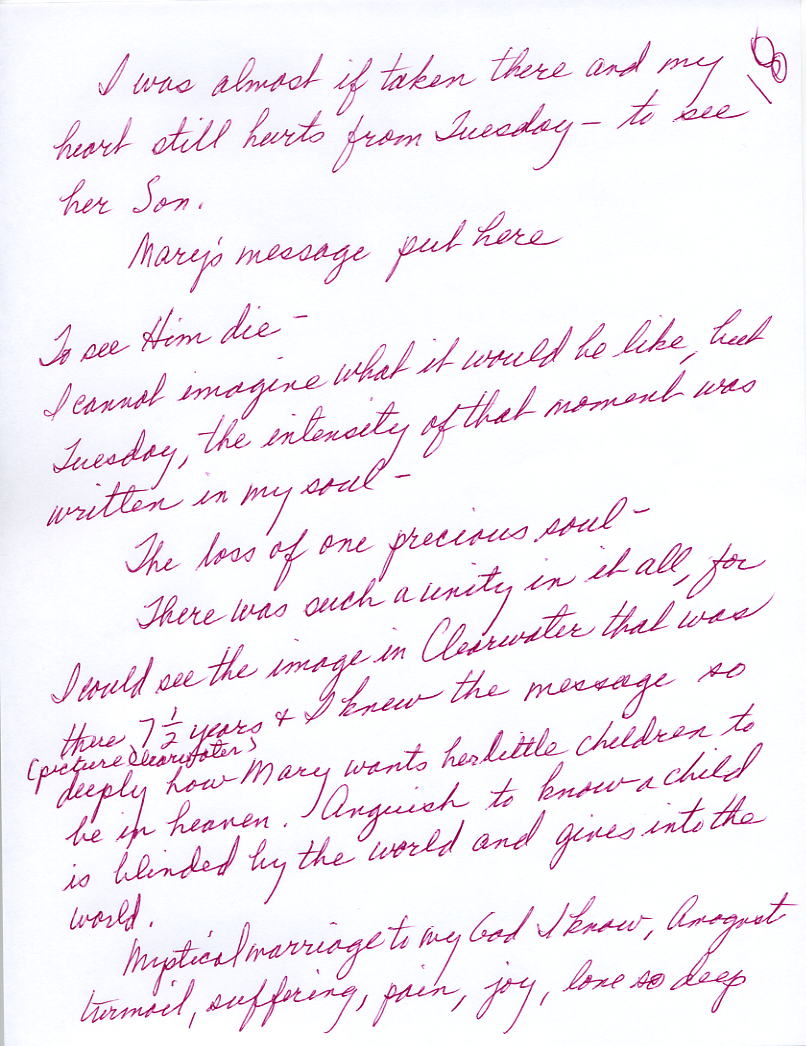 18
I was almost if taken there and my
heart still hurts from Tuesday – to see
her Son.
Mary's message put here
To see Him die –
I cannot imagine what it would be like, but
Tuesday, the intensity of that moment was
written in my soul –
The loss of one precious soul –
There was such a unity in it all, for
I could see the image in Clearwater that was
there 7 1/2 years & I knew the message so
(picture Clearwater)
deeply how Mary wants her little children to
be in heaven. Anguish to know a child
is blinded by the world and gives into the
world.
Mystical marriage to my God I know, Amongst
turmoil, suffering, pain, joy, love so deep